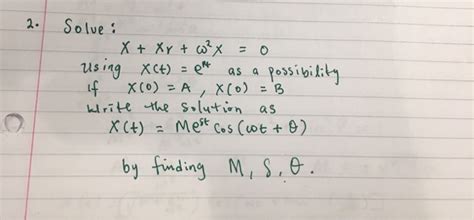 2. Solve :
X + Xr + ω²x = 0
Using X(t) = eʳᵗ as a possibility
if X(0) = A , X(0) = B
Write the solution as
X(t) = Meˢᵗ Cos (ωt + θ)
by finding M, S, θ.